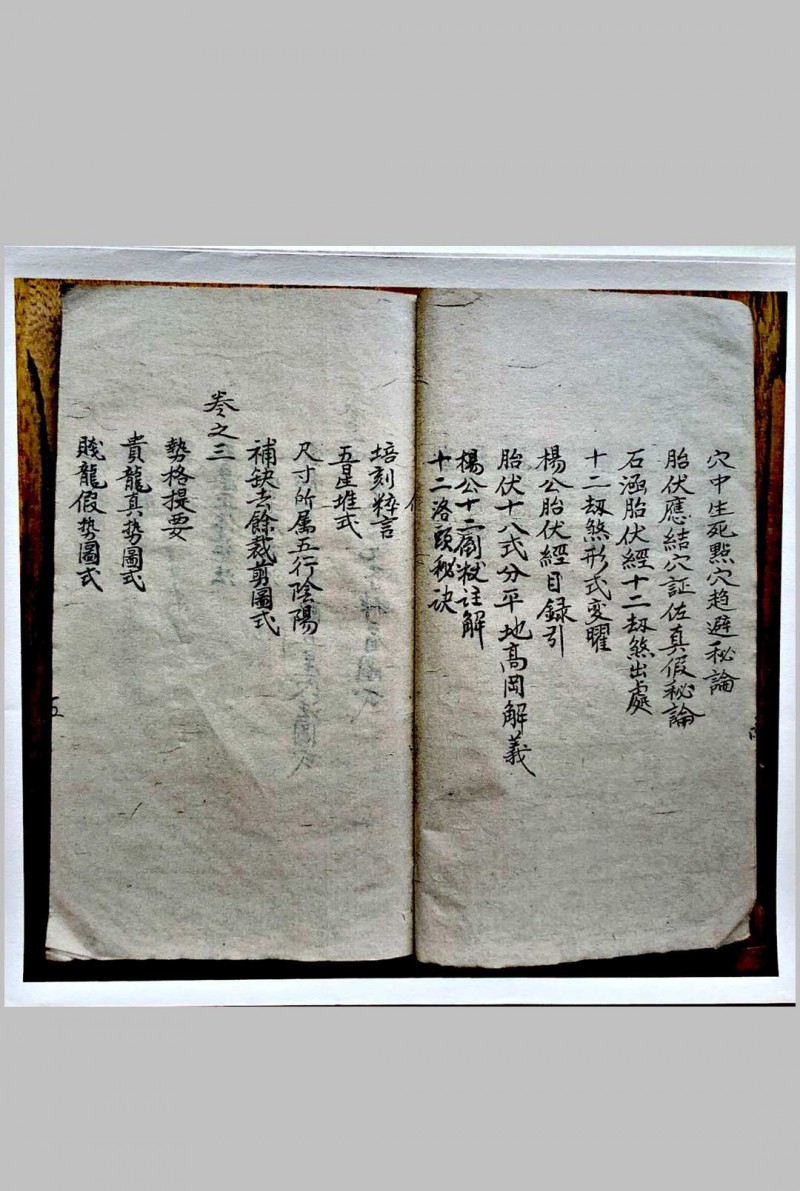 穴中生死點穴趋避秘論
胎伏應結穴証佐真假秘論
石涵胎伏經十二刼煞出處
十二刼煞形式变曜
楊公胎伏經目録引
胎伏十八式分平地高岡解義
楊公十二倒杖註解
十二落頭秘诀
培刻粹言
五星堆式
尺寸所属五行陰陽
補缺去餘裁剪圖式
卷之三
勢格提要
貴龍真势圖式
賤龍假势圖式
五